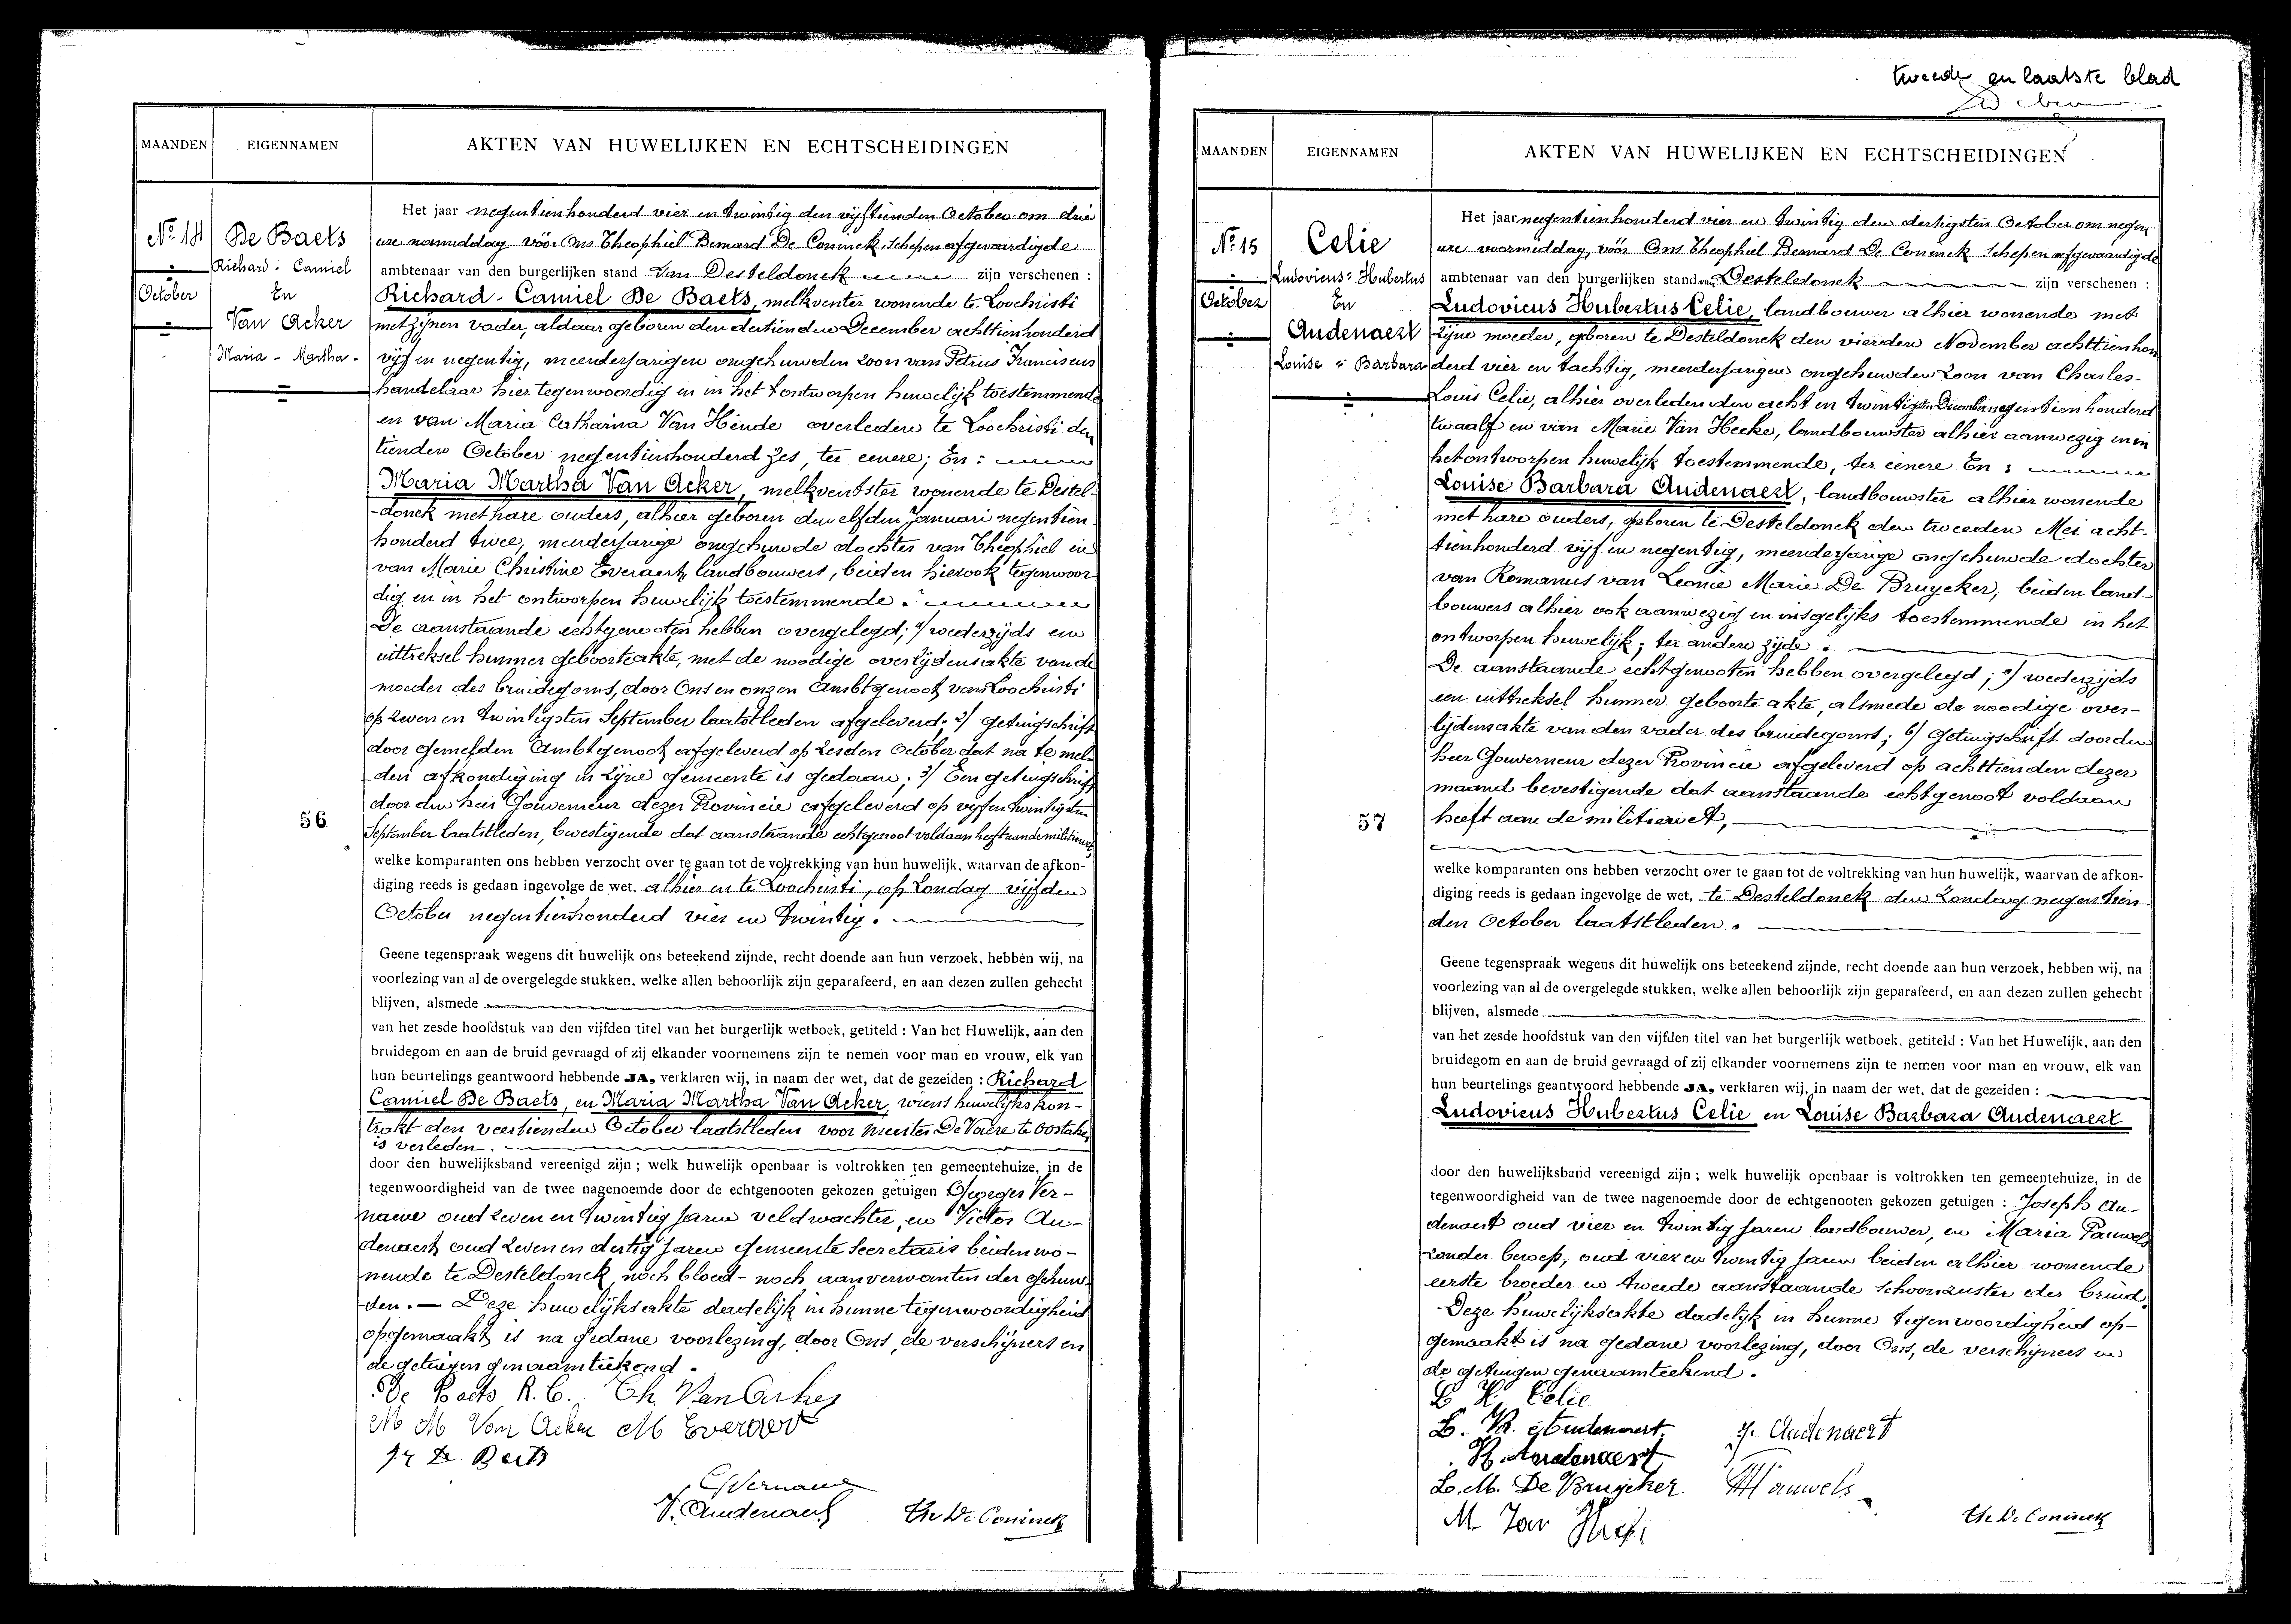 MAANDEN
EIGENNAMEN
AKTEN VAN HUWELIJKEN EN ECHTSCHEIDINGEN
No 14
October
De Baets
Richard: Camiel
En
Van Acker
Maria - Martha -
56
Het jaar negentienhonderd vier en twintig den vijftienden October om drie
ure namiddag vóór Ons Theophiel Bernard De Coninck, Schepen afgevaardigde
ambtenaar van den burgerlijken stand Van Desteldonck zijn verschenen :
Richard-Camiel De Baets, melkventer wonende te Loochristi
met zijnen vader, aldaar geboren den dertienden December achttienhonderd
vijf en negentig, meerderjarigen ongehuwden zoon van Petrus Franciscus
handelaar hier tegenwoordig en in het ontworpen huwelijk toestemmende
en van Maria Catharina Van Hende overleden te Loochristi den
tienden October negentienhonderd zes, ter eenere; En :
Maria Martha Van Acker, melkventster wonende te Destel-
-donck met hare ouders, alhier geboren den elfden Januari negentien-
honderd twee, meerderjarige ongehuwde dochter van Theophiel en
van Marie Christine Everaert, landbouwers, beiden hier ook tegenwoor-
dig en in het ontworpen huwelijk toestemmende.
De aanstaande echtgenooten hebben overgelegd; 1/ wederzijds een
uittreksel hunner geboorteakte, met de noodige overlijdensakte van de
moeder des bruidegoms, door Ons en onzen Ambtgenoot van Loochristi
op zeven en twintigsten September laatstleden afgeleverd; 2/ getuigschrift
door gemelden Ambtgenoot afgeleverd op zesden October dat na te mel-
den afkondiging in zijne gemeente is gedaan; 3/ Een getuigschrift
door den heer Gouverneur dezer Provincie afgeleverd op vijf en twintigsten
September laatstleden, bevestigende dat aanstaande echtgenoot voldaan heeft aan de militiewet,
welke komparanten ons hebben verzocht over te gaan tot de voltrekking van hun huwelijk, waarvan de afkon-
diging reeds is gedaan ingevolge de wet, alhier en te Loochristi, op Zondag vijfden
October negentienhonderd vier en twintig.
Geene tegenspraak wegens dit huwelijk ons beteekend zijnde, recht doende aan hun verzoek, hebben wij, na
voorlezing van al de overgelegde stukken, welke allen behoorlijk zijn geparafeerd, en aan dezen zullen gehecht
blijven, alsmede
van het zesde hoofdstuk van den vijfden titel van het burgerlijk wetboek, getiteld : Van het Huwelijk, aan den
bruidegom en aan de bruid gevraagd of zij elkander voornemens zijn te nemen voor man en vrouw, elk van
hun beurtelings geantwoord hebbende JA, verklaren wij, in naam der wet, dat de gezeiden : Richard
Camiel De Baets, en Maria Martha Van Acker, wiens huwelijkskon-
trakt den veertienden October laatstleden voor Meester De Vaere te Oostaker
is verleden.
door den huwelijksband vereenigd zijn ; welk huwelijk openbaar is voltrokken ten gemeentehuize, in de
tegenwoordigheid van de twee nagenoemde door de echtgenooten gekozen getuigen Georges Ver-
naeve oud zeven en twintig jaren veldwachter, en Victor Au-
denaert, oud zeven en dertig jaren gemeente Secretaris beiden wo-
nende te Desteldonck, noch bloed- noch aanverwanten der gehuw-
den. — Deze huwelijksakte dadelijk in hunne tegenwoordigheid
opgemaakt is na gedane voorlezing, door Ons, de verschijners en
de getuigen genaamteekend.
De Baets R. C. Th. Van Acker
M M Van Acker M Everaert
De Baets
G Vernaeve
V. Audenaert Th De Coninck
tweede en laatste blad
MAANDEN
EIGENNAMEN
AKTEN VAN HUWELIJKEN EN ECHTSCHEIDINGEN
No 15
October
Celie
Ludovicus: Hubertus
En
Audenaert
Louise : Barbara
57
Het jaar negentienhonderd vier en twintig den dertigsten October om negen
ure voormiddag, vóór Ons Theophiel Bernard De Coninck Schepen afgevaardigde
ambtenaar van den burgerlijken stand van Desteldonck zijn verschenen :
Ludovicus Hubertus Celie, landbouwer alhier wonende met
zijne moeder, geboren te Desteldonck den vierden November achttienhon
derd vier en tachtig, meerderjarigen ongehuwden zoon van Charles-
Louis Celie, alhier overleden den acht en twintigsten December negentienhonderd
twaalf en van Marie Van Hecke, landbouwster alhier aanwezig en in
het ontworpen huwelijk toestemmende, ter eenere En :
Louise Barbara Audenaert, landbouwster alhier wonende
met hare ouders, geboren te Desteldonck den tweeden Mei acht-
tienhonderd vijf en negentig, meerderjarige ongehuwde dochter
van Romanus van Leonie Marie De Bruycker, beiden land-
bouwers alhier ook aanwezig en insgelijks toestemmende in het
ontworpen huwelijk; ter andere zijde.
De aanstaande echtgenooten hebben overgelegd; a/ wederzijds
een uittreksel hunner geboorte akte, alsmede de noodige over-
lijdensakte van den vader des bruidegoms; b/ Getuigschrift door den
heer Gouverneur dezer Provincie afgeleverd op achttienden dezer
maand bevestigende dat aanstaande echtgenoot voldaan
heeft aan de militiewet,
welke komparanten ons hebben verzocht over te gaan tot de voltrekking van hun huwelijk, waarvan de afkon-
diging reeds is gedaan ingevolge de wet, te Desteldonck den Zondag negentien
den October laatstleden.
Geene tegenspraak wegens dit huwelijk ons beteekend zijnde, recht doende aan hun verzoek, hebben wij, na
voorlezing van al de overgelegde stukken, welke allen behoorlijk zijn geparafeerd, en aan dezen zullen gehecht
blijven, alsmede
van het zesde hoofdstuk van den vijfden titel van het burgerlijk wetboek, getiteld : Van het Huwelijk, aan den
bruidegom en aan de bruid gevraagd of zij elkander voornemens zijn te nemen voor man en vrouw, elk van
hun beurtelings geantwoord hebbende JA, verklaren wij, in naam der wet, dat de gezeiden :
Ludovicus Hubertus Celie en Louise Barbara Audenaert
door den huwelijksband vereenigd zijn ; welk huwelijk openbaar is voltrokken ten gemeentehuize, in de
tegenwoordigheid van de twee nagenoemde door de echtgenooten gekozen getuigen : Joseph Au-
denaert oud vier en twintig jaren landbouwer, en Maria Pauwels
zonder beroep, oud vier en twintig jaren beiden alhier wonende
eerste broeder en tweede aanstaande schoonzuster der bruid.
Deze huwelijksakte dadelijk in hunne tegenwoordigheid op-
gemaakt is na gedane voorlezing, door Ons, de verschijners en
de getuigen genaamteekend.
L H Celie
L. B. Audenaert J. Audenaert
R. Audenaert
L. M. De Bruycker M Pauwels
M Van Hecke
Th De Coninck